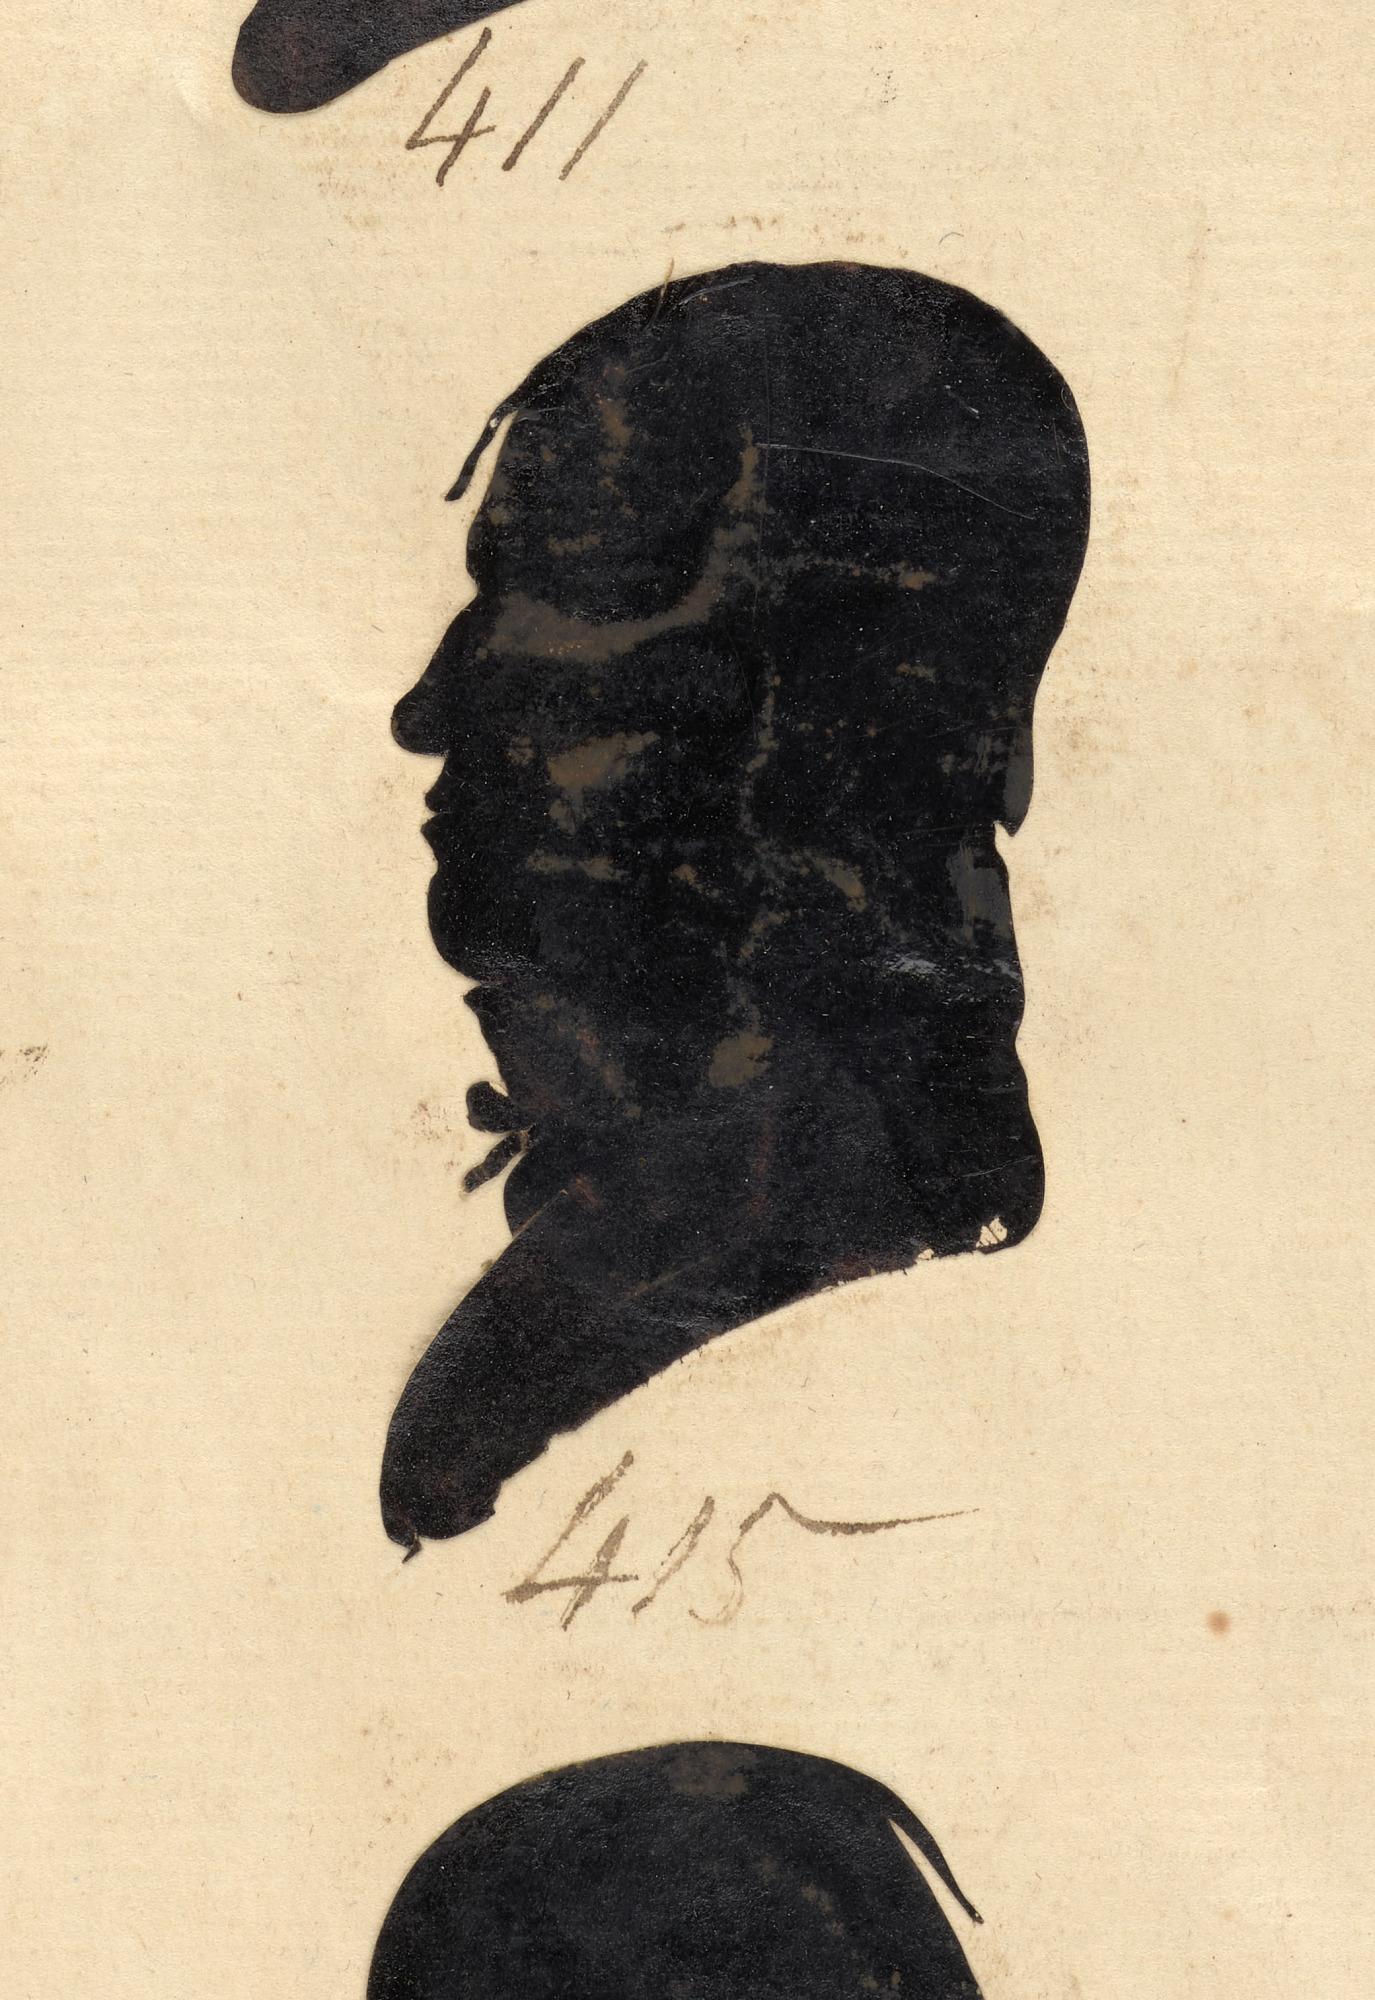 411
415